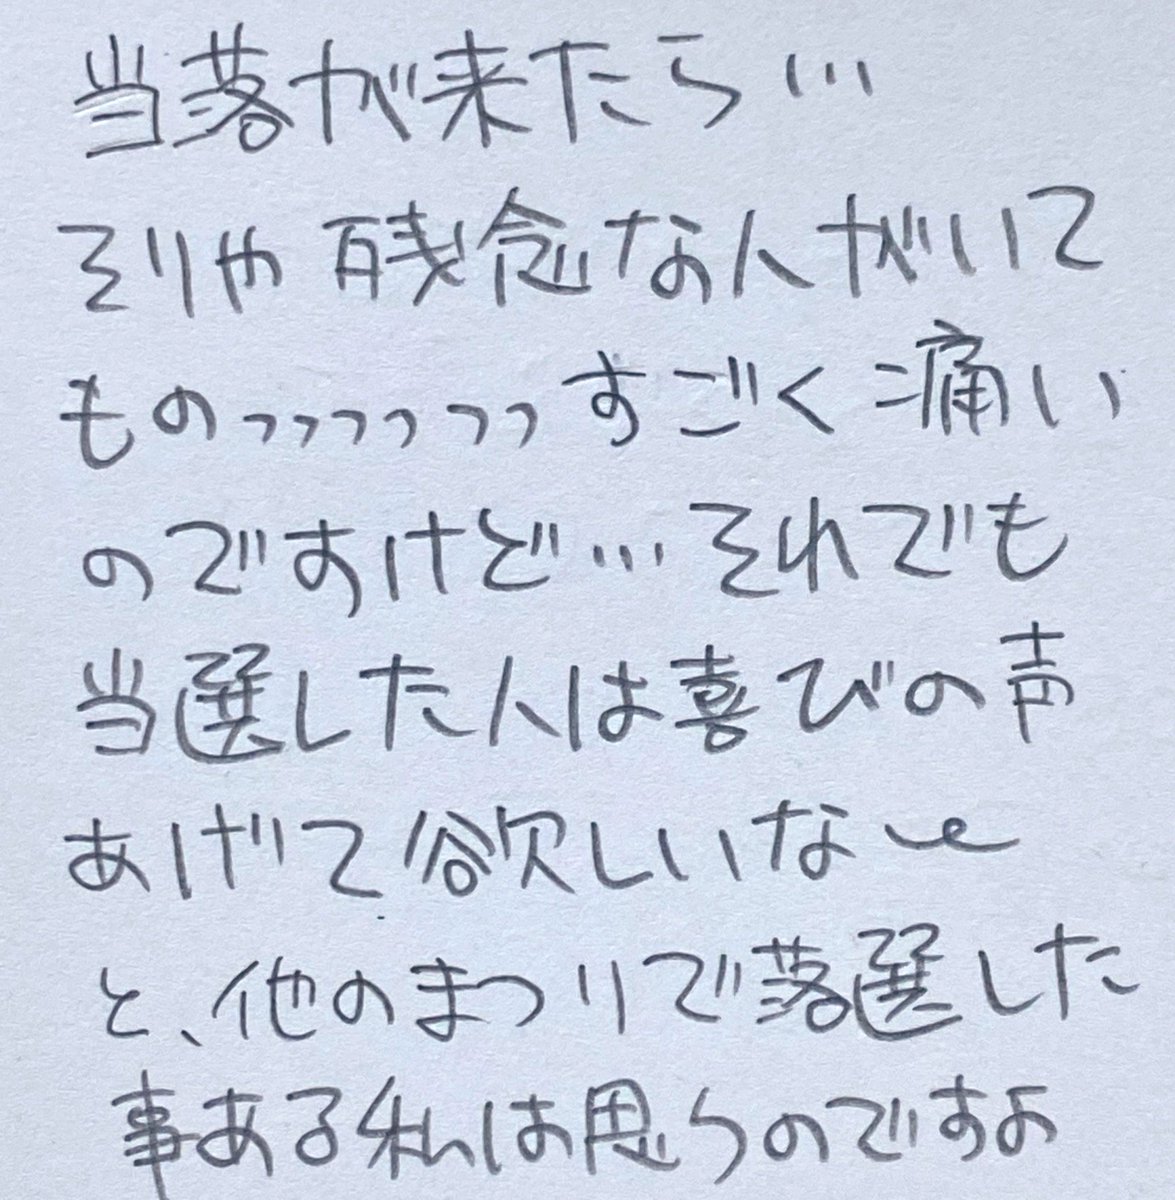 当落が来たら…
そりゃ残念な人がいて
ものっっっっっっっすごく痛い
のですけど…それでも
当選した人は喜びの声
あげて欲しいな〜
と、他のまつりで落選した
事ある私は思うのですよ